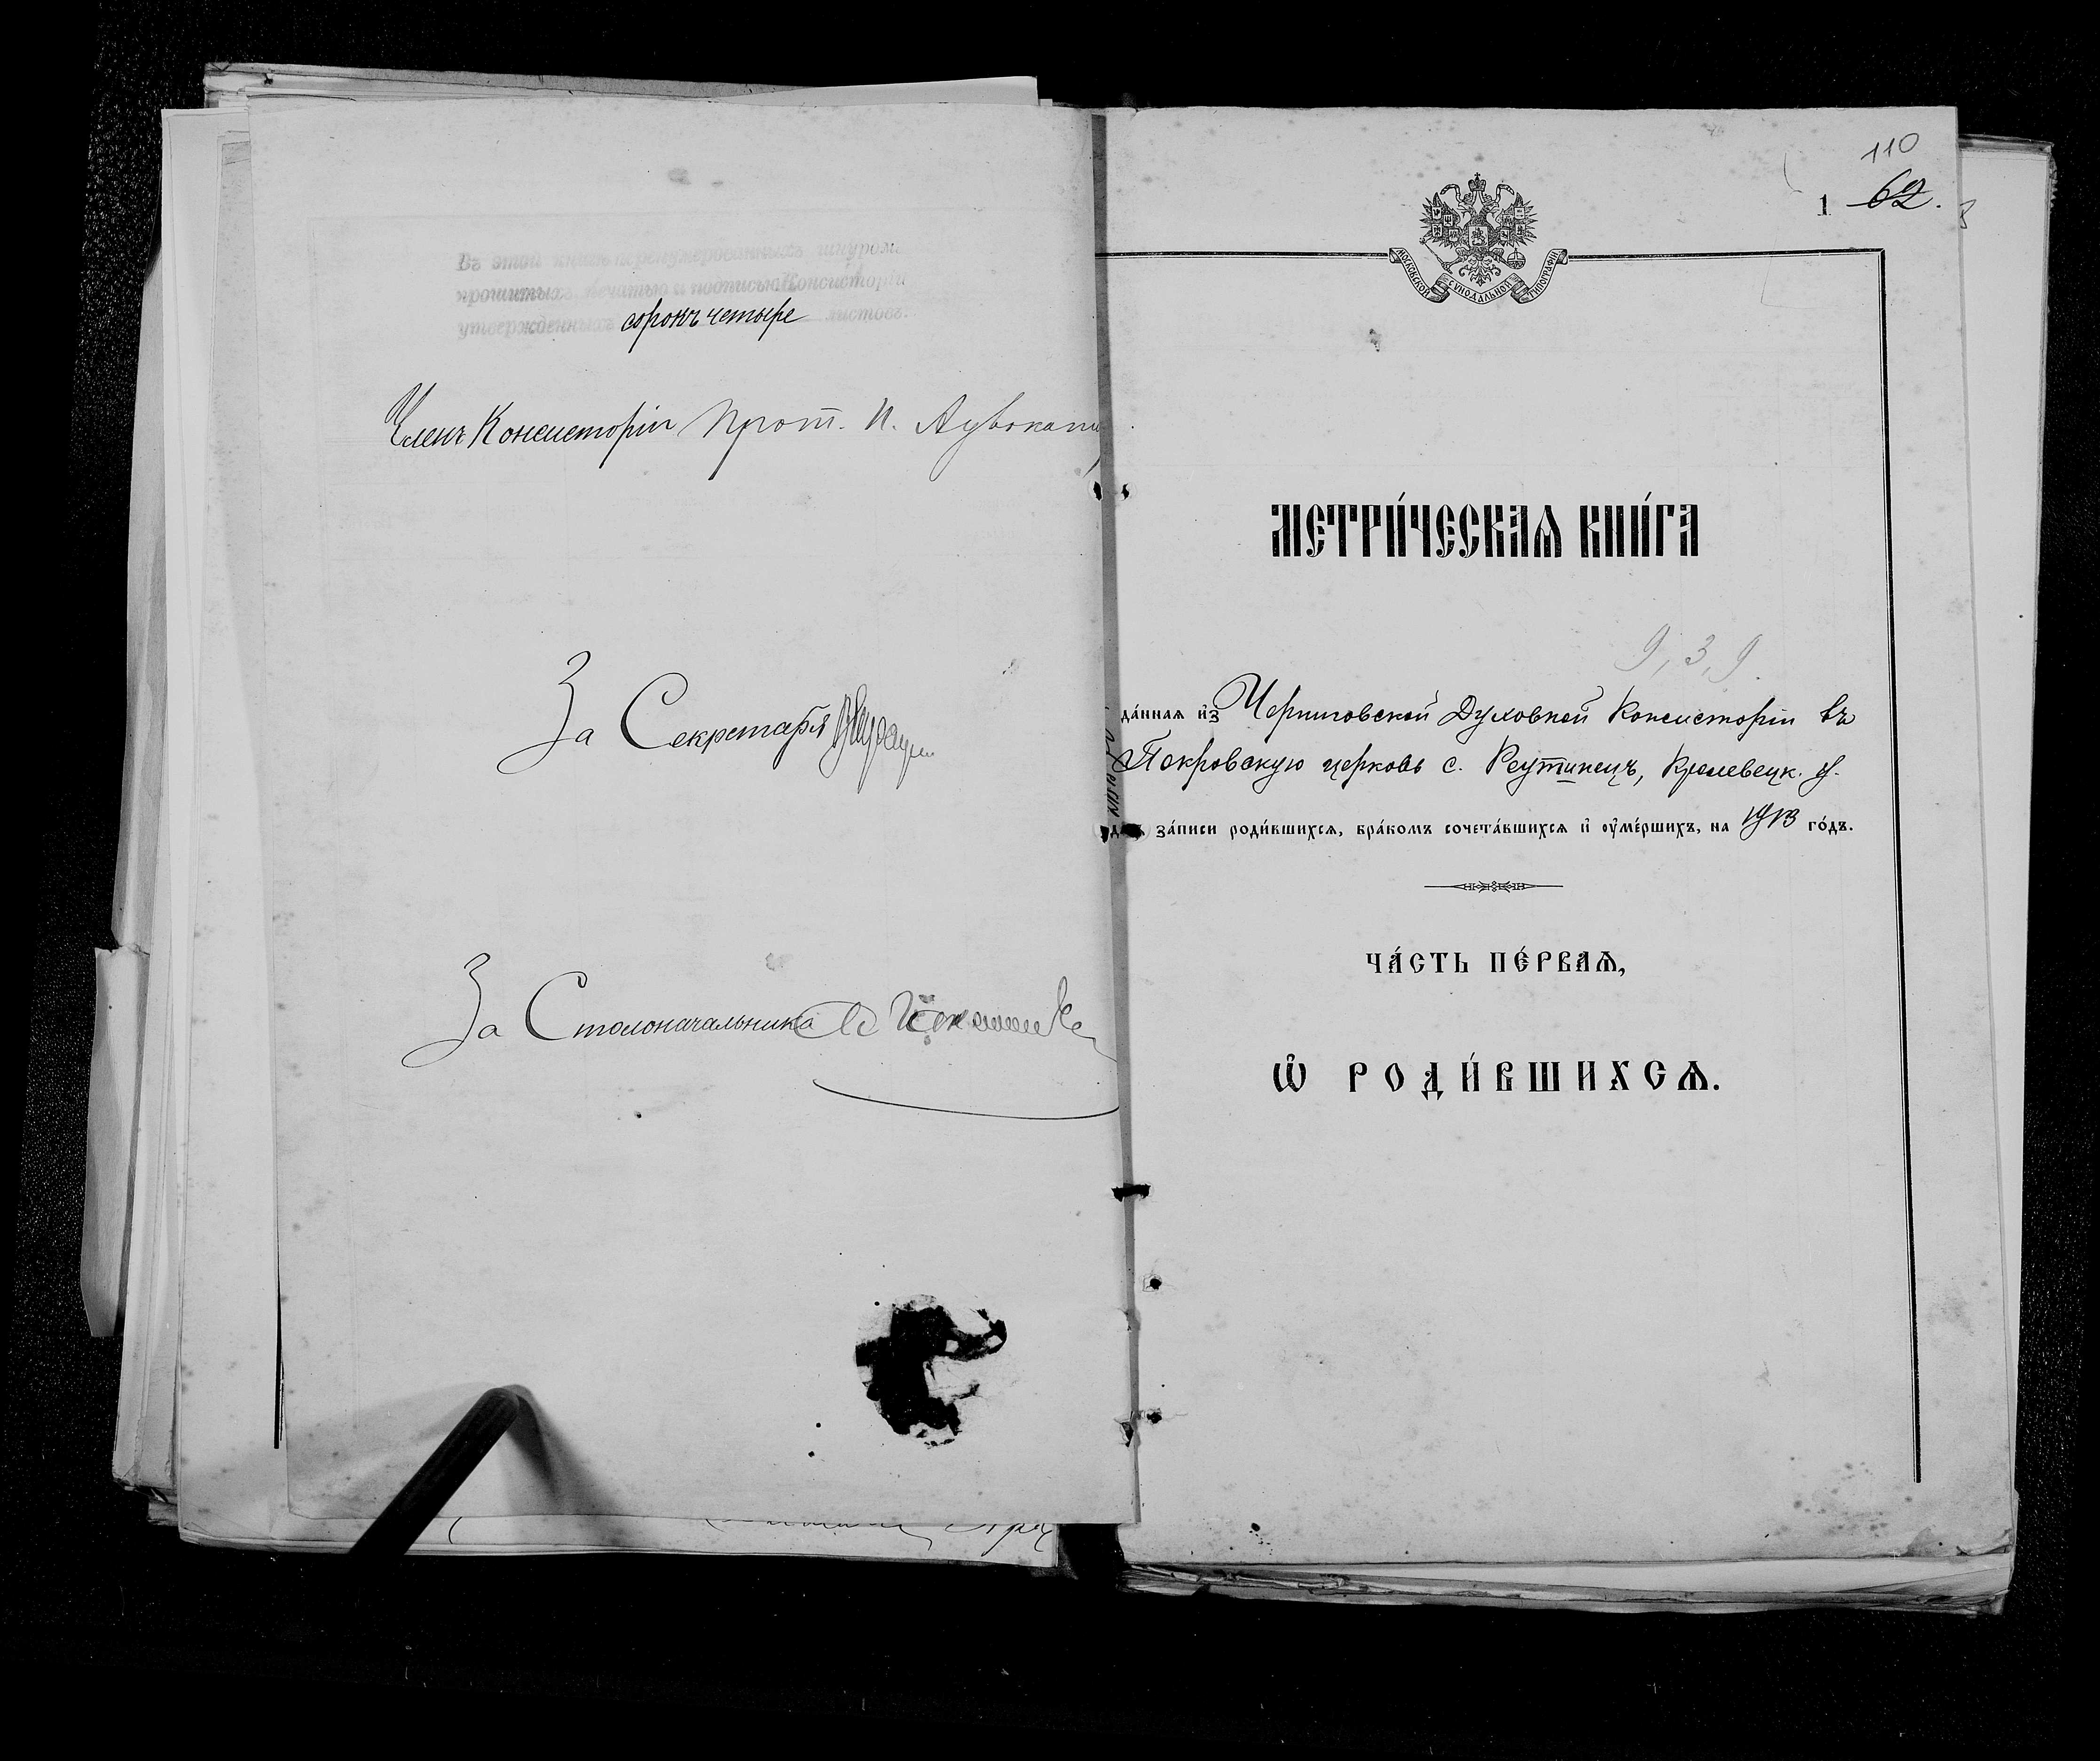 Въ этой книгѣ перенумерованныхъ шнуромъ
прошитыхъ печатью и подписью Консисторіи
утвержденныхъ сорокъ четыре листовъ.
Членъ Консисторіи прот. П. Адвокатъ
За Секретаря
За Столоначальника
110
1 62.
МОСКОВСКОЙ СѴНОДАЛЬНОЙ ТИПОГРАФІИ
МЕТРИ́ЧЕСКАѦ КНИ́ГА
9, 3, 9.
да́ннаѧ и҆з Черниговской Духовной Консисторіи въ
Покровскую церковь с. Реутинецъ, Кролевецк. у.
длѧ за́писи роди́вшихсѧ, бра́комъ сочета́вшихсѧ и҆ оу҆ме́ршихъ, на 1913 го́дъ.
ЧА́СТЬ ПЕ́РВАѦ,
Ѡ҆ РОДИ́ВШИХСѦ.